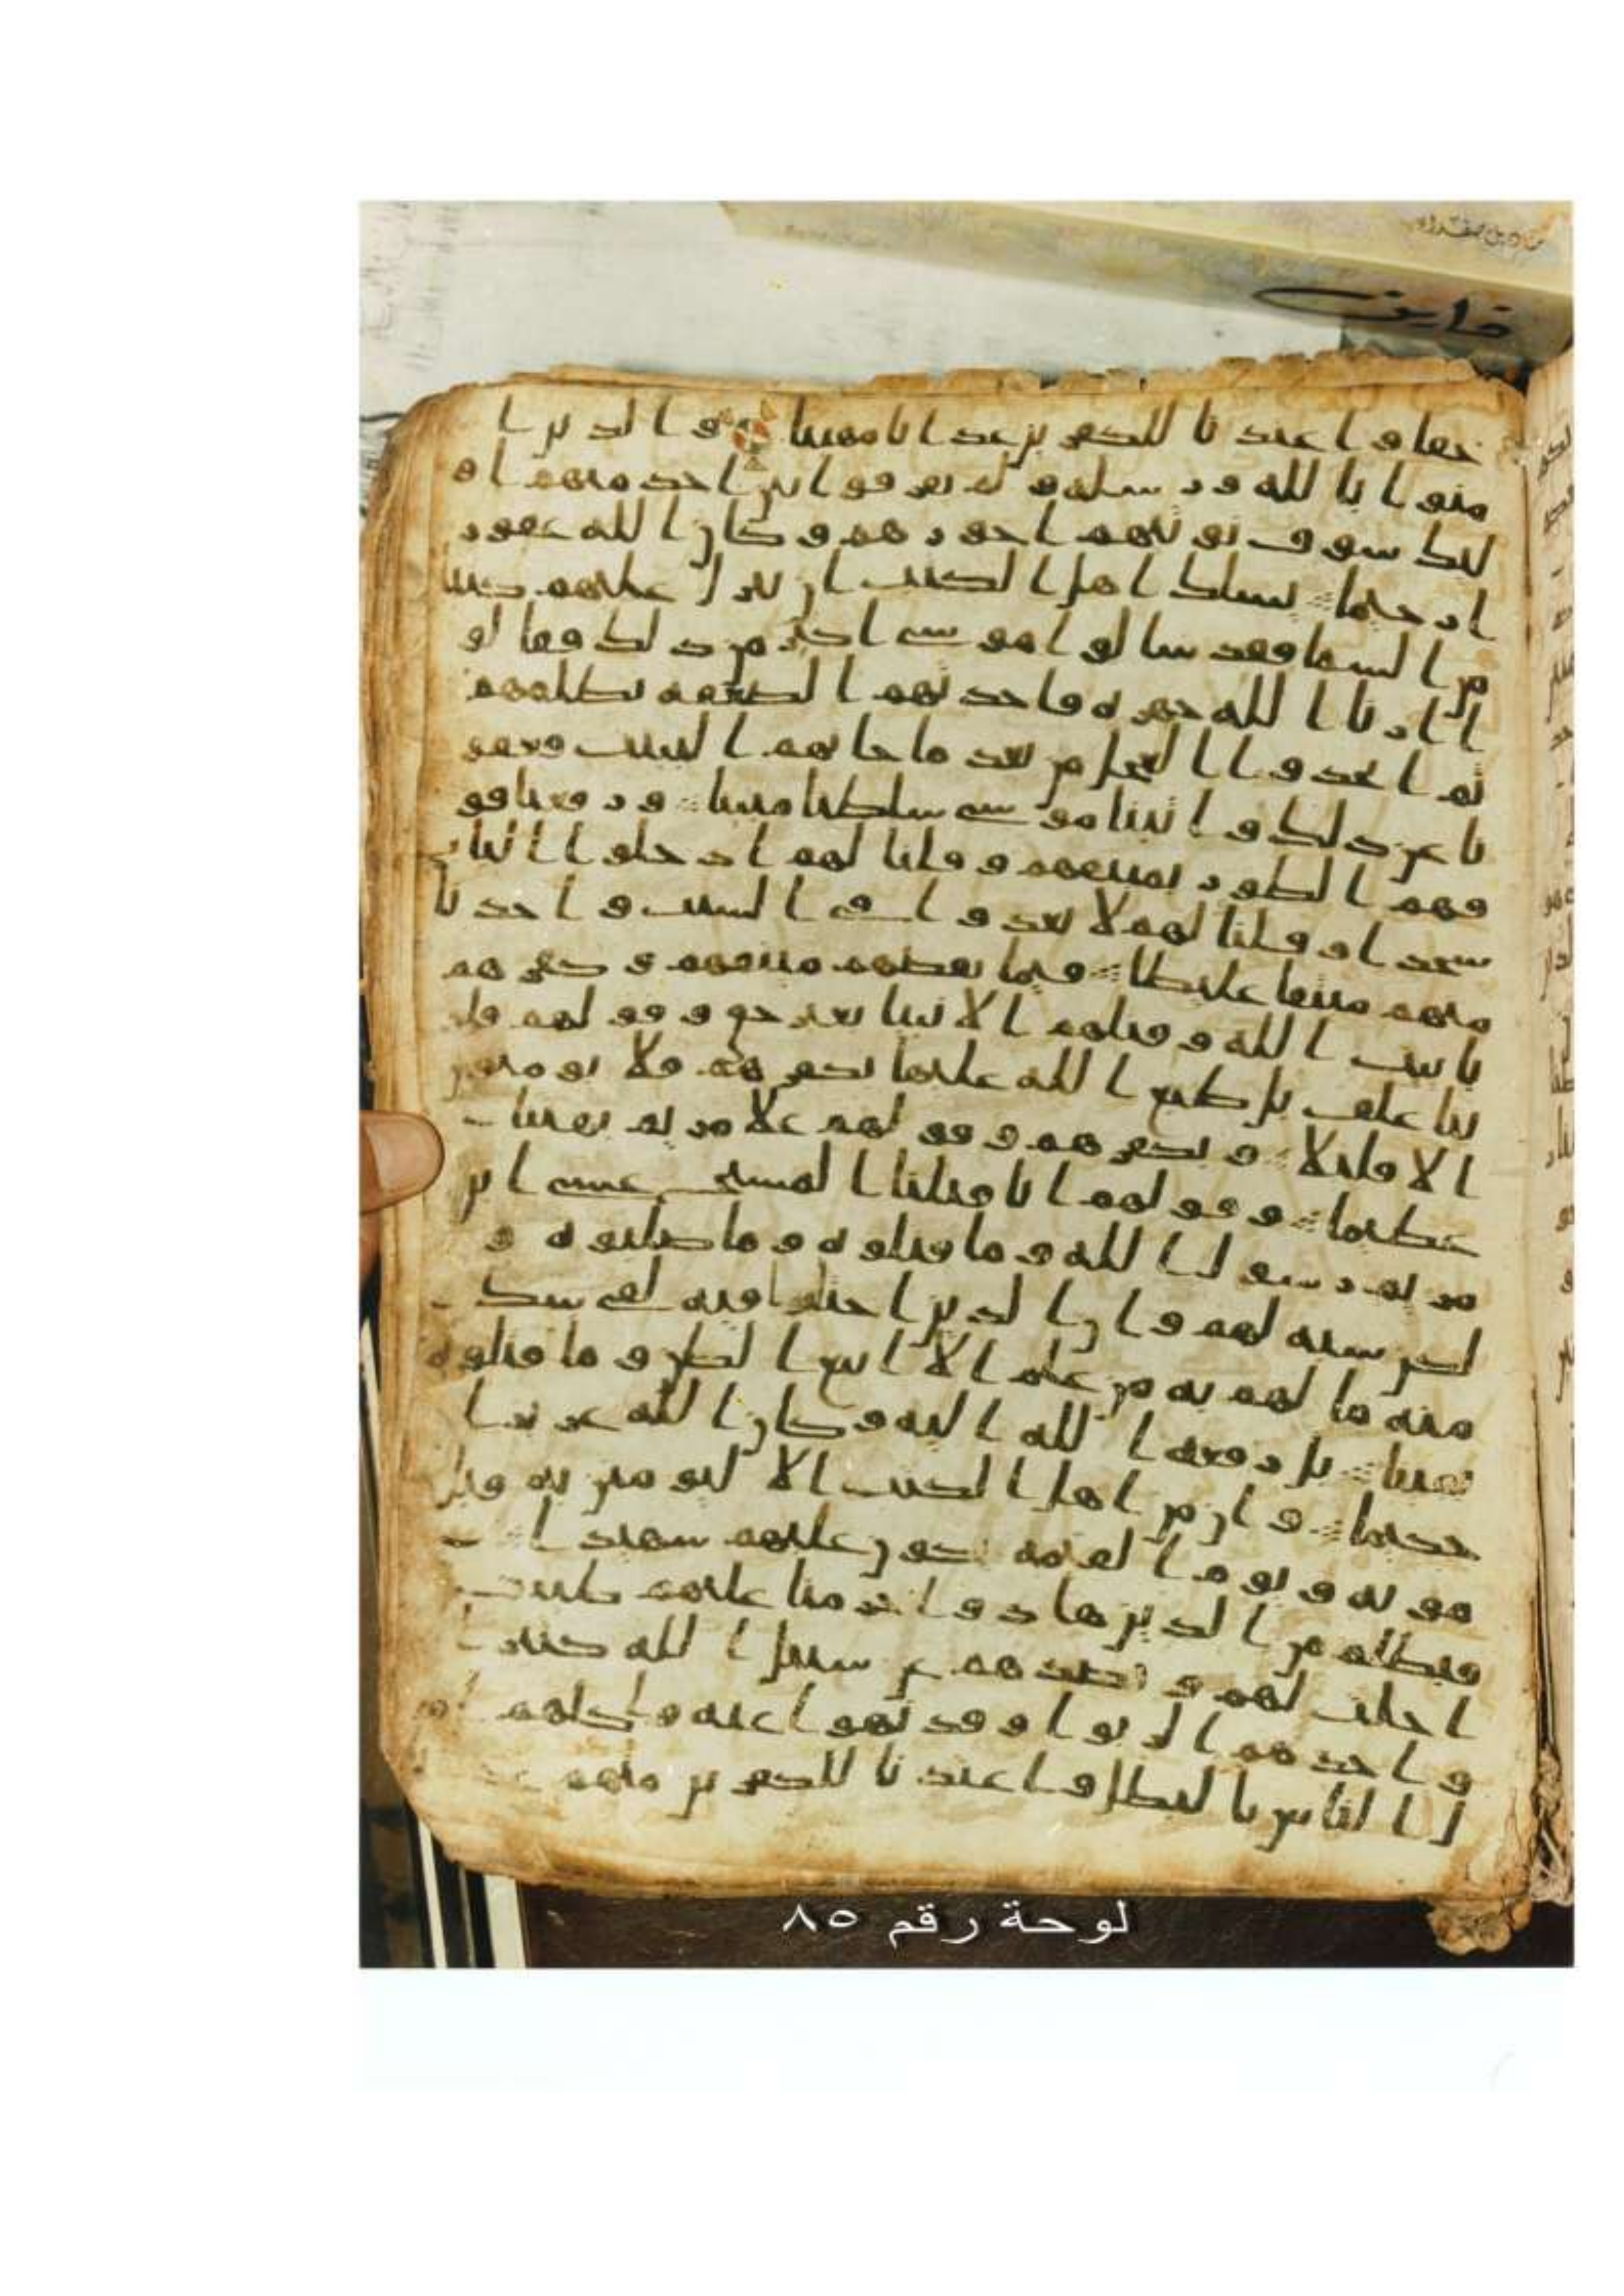 حقا واعتدنا للكفرين عذابا مهينا والذين ا
منوا بالله ورسله ولم يفرقوا بين احد منهم او
ليك سوف نوتيهم اجورهم وكان الله غفور
ا رحيما يسلك اهل الكتب ان تنزل عليهم كتبا
من السما فقد سالوا موسى اكبر من ذلك فقالو
ا ارنا الله جهرة فاخذتهم الصعقة بظلمهم
ثم اتخذوا العجل من بعد ما جاتهم البينت فعفو
نا عن ذلك واتينا موسى سلطنا مبينا ورفعنا فو
قهم الطور بميثقهم وقلنا لهم ادخلوا الباب
سجدا وقلنا لهم لا تعدوا في السبت واخذنا
منهم ميثقا غليظا فبما نقضهم ميثقهم وكفرهم
بايت الله وقتلهم الانبيا بغير حق وقولهم قلو
بنا غلف بل طبع الله عليها بكفرهم فلا يومنون
الا قليلا وبكفرهم وقولهم علا مريم بهتنا
عظيما وقولهم انا قتلنا المسيح عيسى ابن
مريم رسول الله وما قتلوه وما صلبوه و
لكن شبه لهم وان الذين اختلفوا فيه لفي شك
منه ما لهم به من علم الا اتباع الظن وما قتلوه
يقينا بل رفعه الله اليه وكان الله عزيزا
حكيما وان من اهل الكتب الا ليومنن به قبل
موته ويوم القيمة يكون عليهم شهيدا
فبظلم من الذين هادوا حرمنا عليهم طيبت
احلت لهم وبصدهم عن سبيل الله كثيرا
واخذهم الربوا وقد نهوا عنه واكلهم امو
ل الناس بالبطل واعتدنا للكفرين منهم عذ
لوحة رقم ٨٥